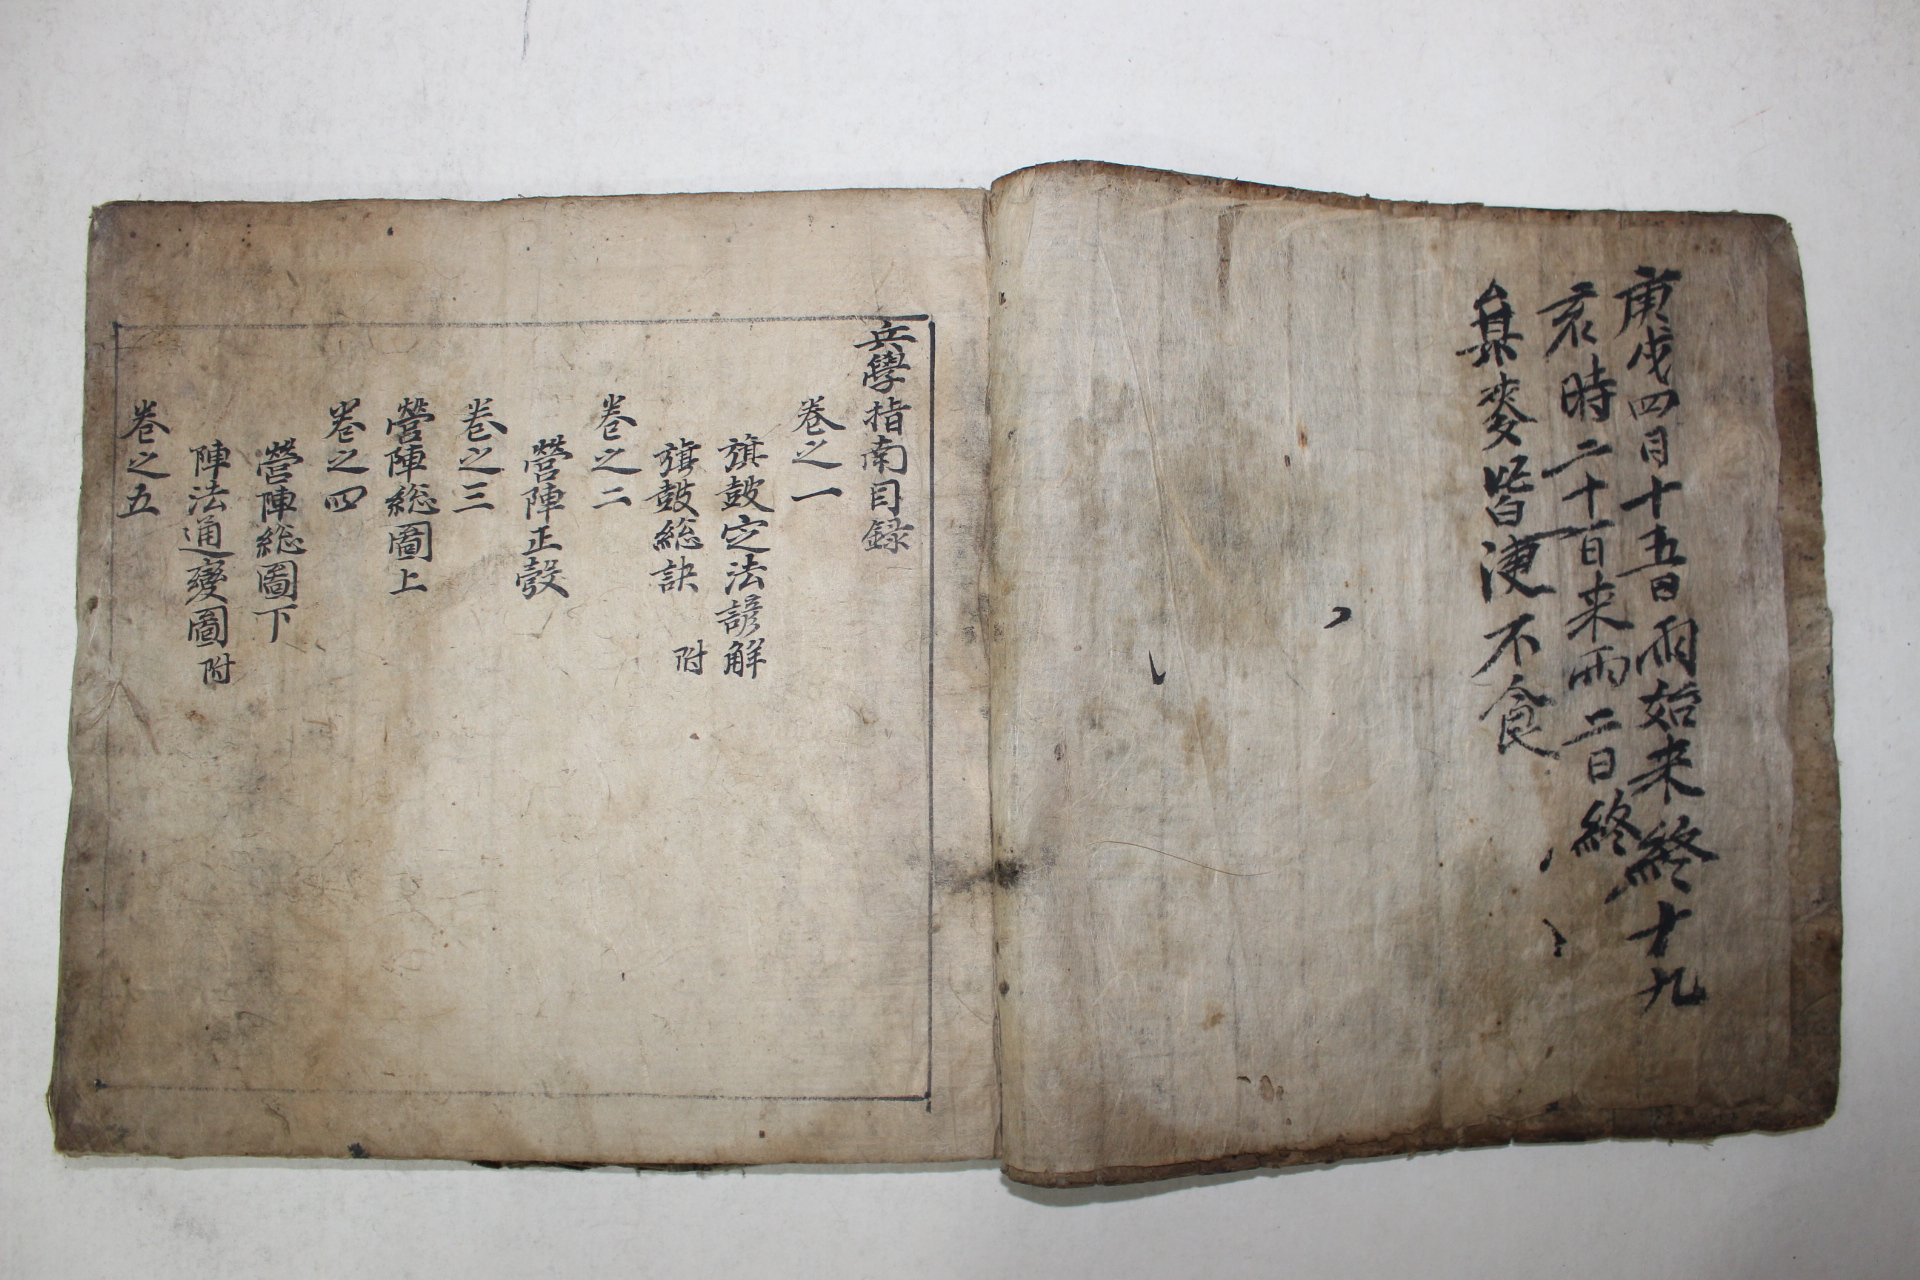 庚戌四月十五日雨始来終十九
亥時二十一日来雨二日終
其麥皆浭不食
兵學指南目録
卷之一
旗鼓定法諺解
旗鼓総訣 附
卷之二
營陣正彀
卷之三
營陣総圖上
卷之四
營陣総圖下
陣法通變圖附
卷之五